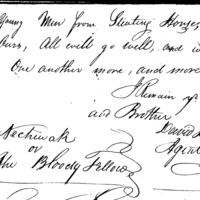 Young Men from Hunting Horses
Ours, All will go well, and
One another more, and more
I Remain
and Brother
Nechinak David
or Agent
The Bloody Fellow